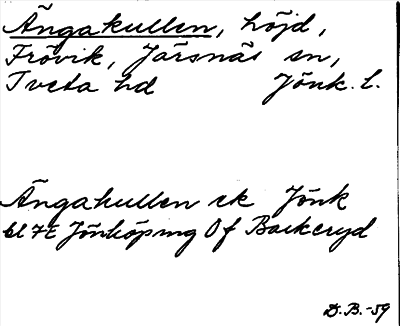 Ängakullen, höjd,
Frövik, Järsnäs sn,
Tveta hd Jönk. l.
Ängakullen ek Jönk
bl 7E Jönköping Of Backeryd
D.B.-59